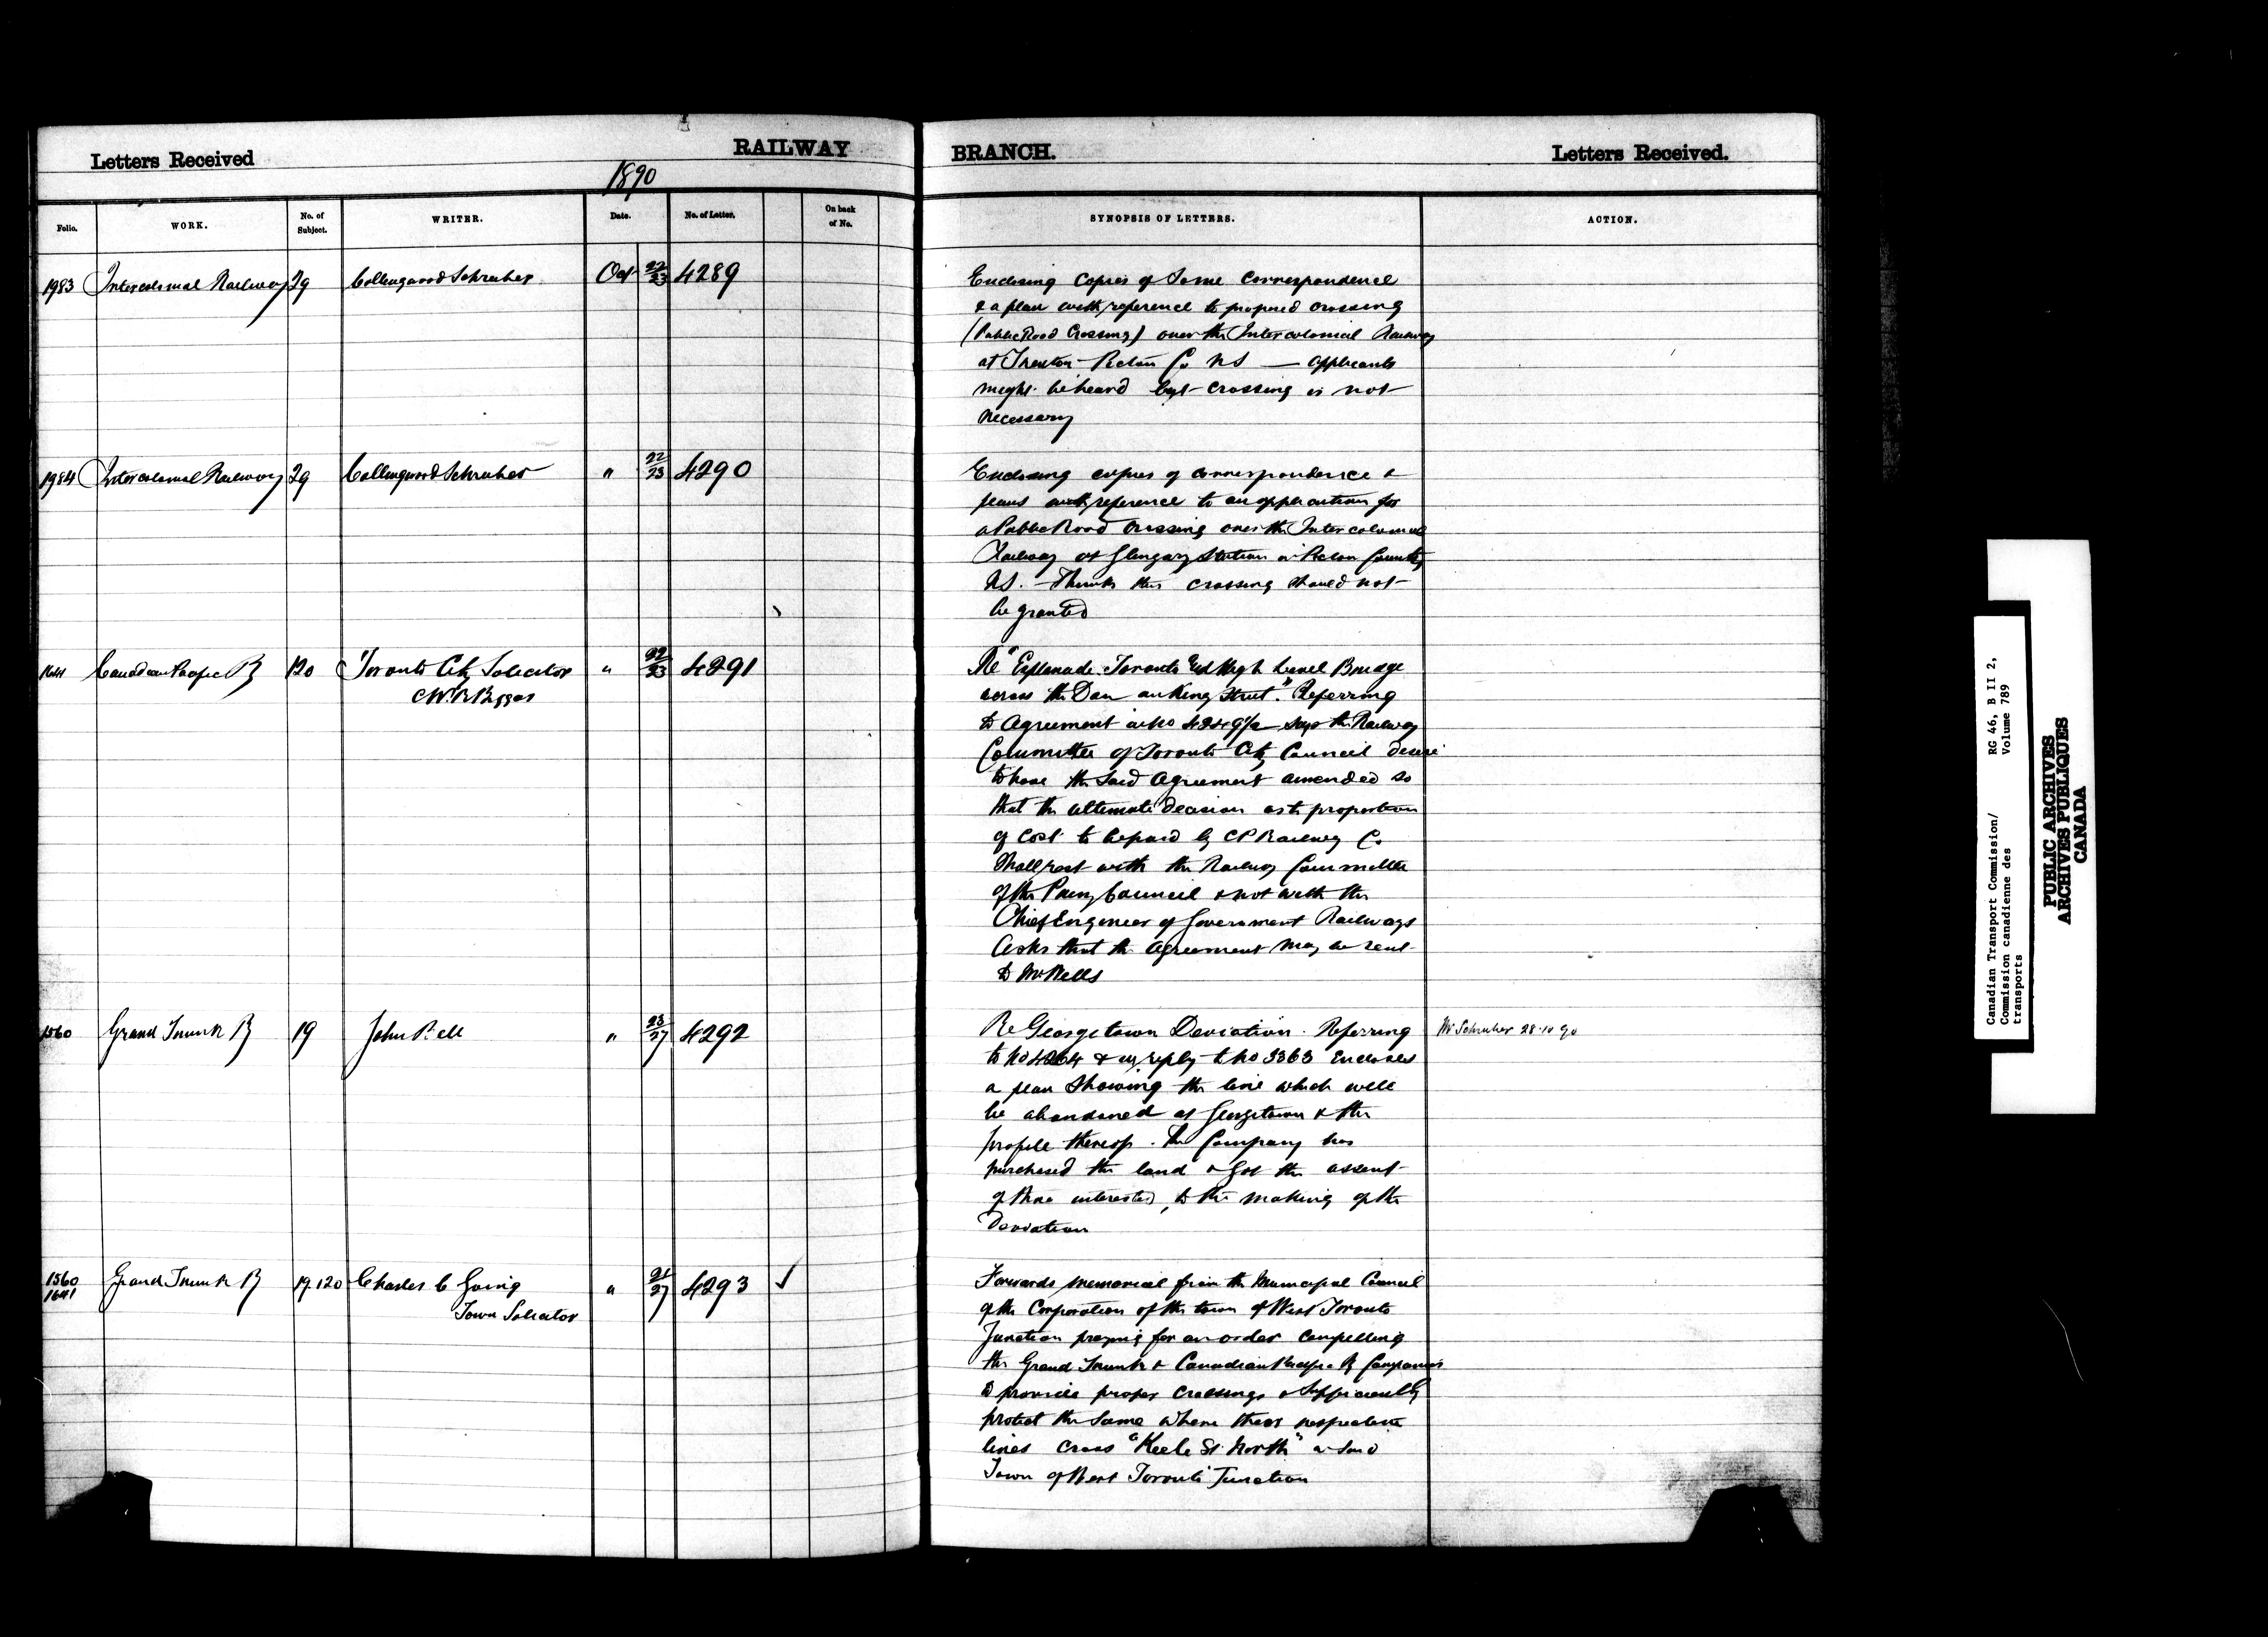 Letters Received
RAILWAY
BRANCH.
Letters Received.
1890
Folio.
WORK.
No. of Subject.
WRITER.
Date.
No. of Letter.
On back of No.
SYNOPSIS OF LETTERS.
ACTION.
1983 Intercolonial Railway 29 Collingwood Schreiber Oct 22/23 4289
Enclosing Copies of Some Correspondence
& a plan with reference to proposed crossing
(Public Road Crossing) over the Intercolonial Railway
at Trenton Pictou Co NS — Applicants
might be heard but crossing is not
necessary
1984 Intercolonial Railway 29 Collingwood Schreiber " 22/23 4290
Enclosing copies of correspondence &
plans with reference to an application for
a Public Road Crossing over the Intercolonial
Railway at Glengary Station in Pictou County
NS. — Thinks this crossing should not
be granted
1641 Canadian Pacific Ry 120 Toronto City Solicitor " 22/23 4291
C.W.R. Biggar
Re "Esplanade Toronto High Level Bridge
across the Don on King Street." Referring
to Agreement in No 4249½ says the Railway
Committee of Toronto City Council desire
to have the said Agreement amended so
that the ultimate decision as to proportion
of Cost to be paid by CP Railway Co
shall rest with the Railway Committee
of the Privy Council & not with the
Chief Engineer of Government Railways
Asks that the Agreement may be sent
to Mr Wells
1560 Grand Trunk Ry 19 John Bell " 23/27 4292
Re Georgetown Deviation. Referring
to No 4264 & in reply to No 3363 Encloses
a plan showing the line which will
be abandoned at Georgetown & the
profile thereof. The Company has
purchased the land & got the assent
of those interested, to the making of the
Deviation
Mr Schreiber 28.10.90
1560
1641 Grand Trunk Ry 19.120 Charles C Going " 21/27 4293 ✓
Town Solicitor
Forwards memorial from the Municipal Council
of the Corporation of the town of West Toronto
Junction praying for an order compelling
the Grand Trunk & Canadian Pacific Ry Companies
to provide proper crossings & sufficiently
protect the same where their respective
lines cross "Keele St. North" in said
Town of West Toronto Junction
Canadian Transport Commission/ RG 46, B II 2,
Commission canadienne des Volume 789
transports
PUBLIC ARCHIVES
ARCHIVES PUBLIQUES
CANADA